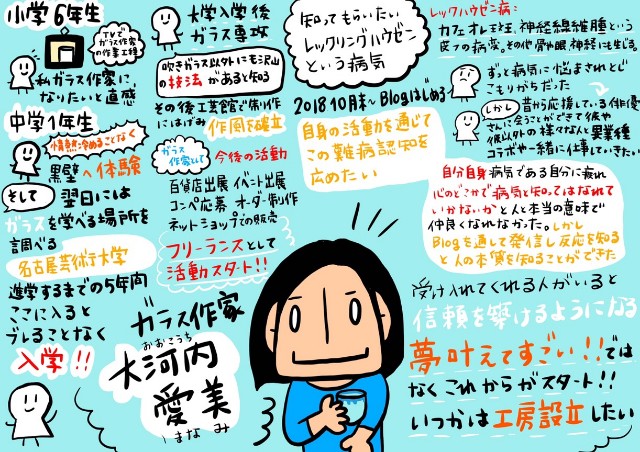 小学6年生
TVで
ガラス作家
の作業工程
私ガラス作家に
なりたいと直感
中学1年生
情熱冷めることなく
黒壁へ体験
そして
翌日には
ガラスを学べる場所を
調べる
名古屋芸術大学
進学するまでの5年間
ここに入ると
ブレることなく
入学!!
大学入学後
ガラス専攻
吹きガラス以外にも沢山
の技法があると知る
その後工芸館で制作
にはげみ作風を確立
ガラス
作家として
今後の活動
百貨店出展 イベント出展
コンペ応募 オーダー制作
ネットショップでの販売
フリーランスとして
活動スタート!!
ガラス作家
おおこうち
大河内
愛美
まなみ
知ってもらいたい
レックリングハウゼン
という病気
2018 10月末~Blogはじめる
自身の活動を通じて
この難病認知を
広めたい
レックリングハウゼン病:
カフェオレ斑、神経線維腫という
皮フの病変。その他骨や眼、神経にも生じる。
ずっと病気に悩まされとじ
こもりがちだった
しかし
昔から応援している俳優
さんに会うことができて彼や
彼以外の様々な人と異業種
コラボや一緒に仕事していきたい
自分自身病気である自分に疲れ
心のどこかで病気と知ってはなれて
いかないか と人と本当の意味で
仲良くなれなかった。しかし
Blogを通して発信し反応を知る
と人の本質を知ることができた
受け入れてくれる人がいると
信頼を築けるようになる
夢叶えてすごい!!では
なくこれからがスタート!!
いつかは工房設立したい